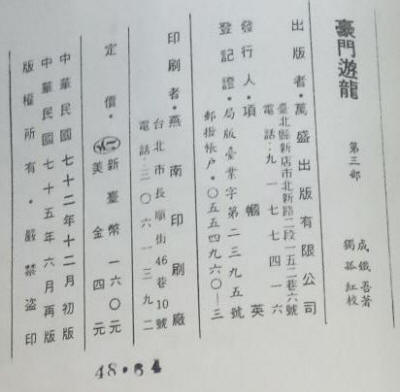 豪門遊龍 第三部 成鐵吾著
獨孤紅校
出版者・萬盛出版有限公司
臺北縣新店市北新路二段一五二巷六號
電話：九一七七四一六
發行人・項幗英
登記證・局版臺業字第二三九五號
郵撥帳戶・〇五五四九六〇—三
印刷者・燕南印刷廠
台北市長順街46巷10號
電話：三〇六一三九二
定價・新臺幣一六〇元
美金四元
中華民國七十二年十二月初版
中華民國七十五年六月再版
版權所有・嚴禁盜印
48・64